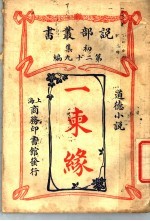 説部叢書
初集
第二十九編
道德小説
一束緣
上海
商務印書館發行